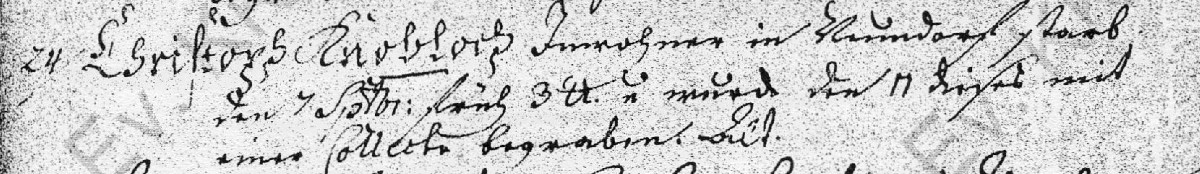 24 Christoph Knobloch Inwohner in Neundorf starb
den 7 Septbr: früh 3 U. u wurde den 11 dieses mit
einer Collecte begraben. Alt.